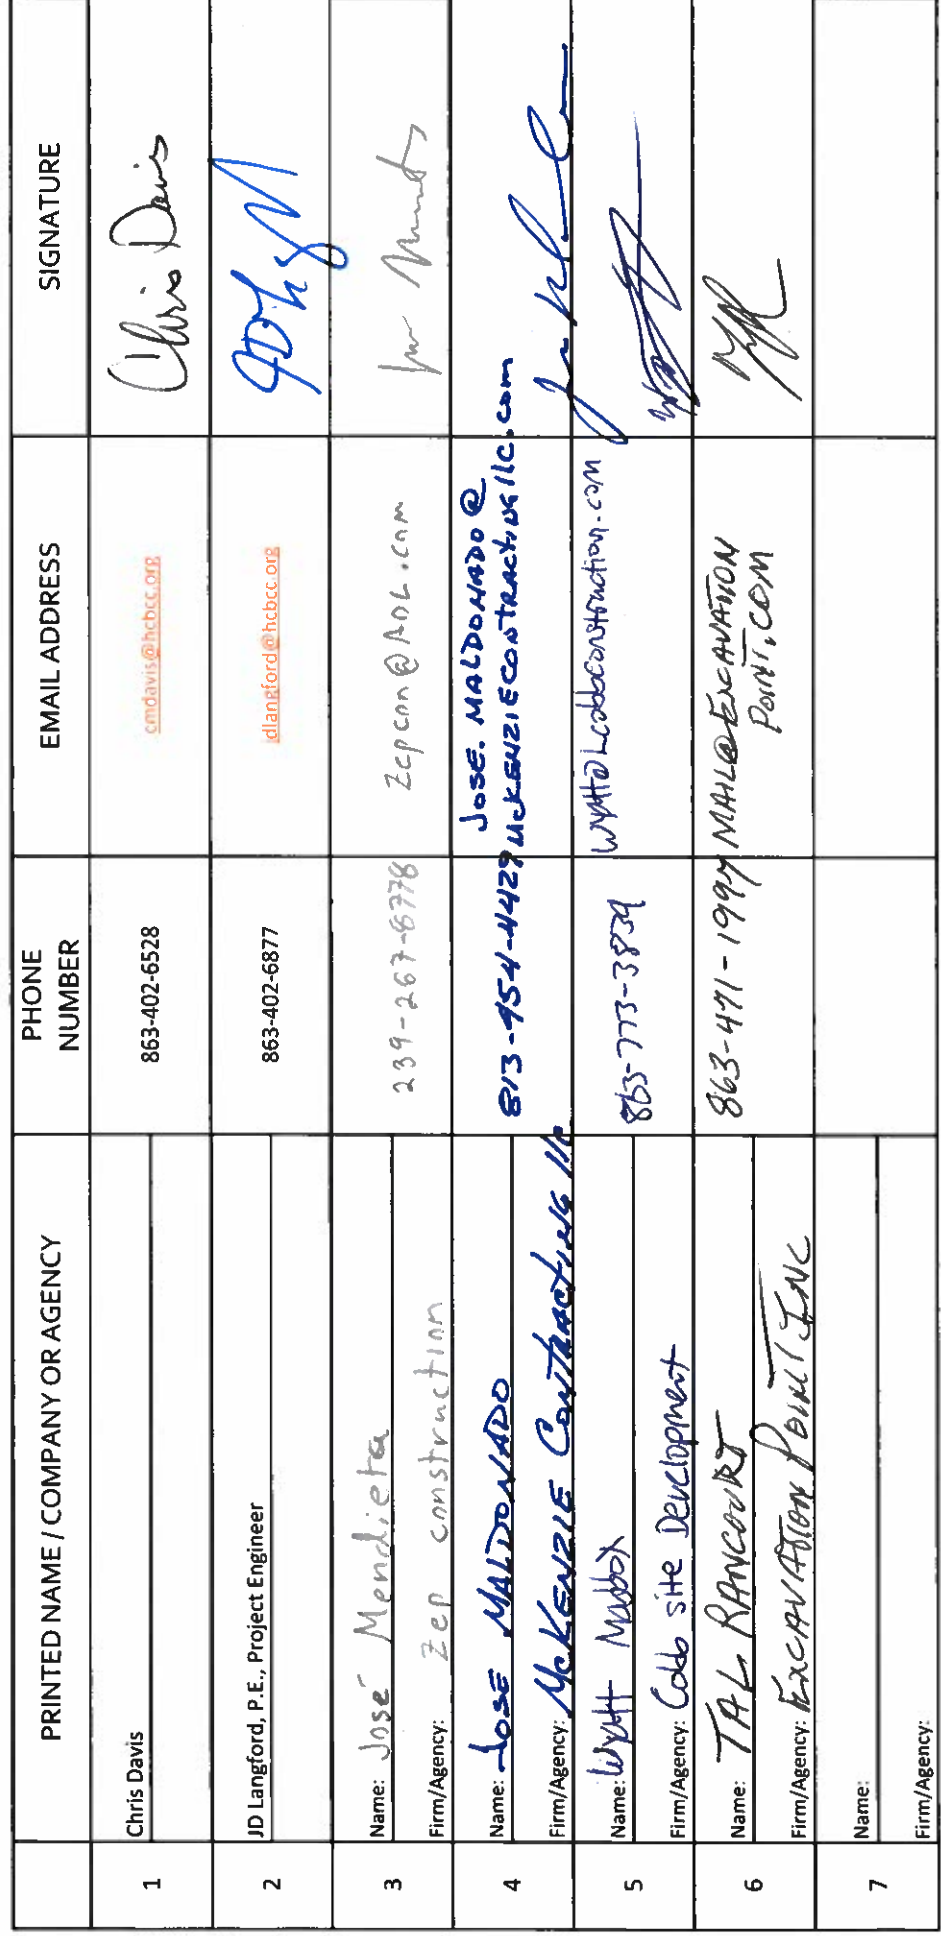 PRINTED NAME / COMPANY OR AGENCY
PHONE
NUMBER
EMAIL ADDRESS
SIGNATURE
1
Chris Davis
863-402-6528
cmdavis@hcbcc.org
Chris Davis
2
JD Langford, P.E., Project Engineer
863-402-6877
jdlangford@hcbcc.org
3
Name: José Mendieta
Firm/Agency: Zep construction
239-267-8778
Zepcon@AOL.com
4
Name: JOSE MALDONADO
Firm/Agency: McKENZIE CONTRACTING llc
813-454-4429
JOSE.MALDONADO@
McKENZIECONTRACTINGllc.com
5
Name: Wyatt Maddox
Firm/Agency: Cobb site Development
863-773-3839
wyatt@Lcobbconstruction.com
6
Name: TAL RANCOURT
Firm/Agency: EXCAVATION POINT INC
863-471-1997
MAIL@EXCAVATION
POINT.COM
7
Name:
Firm/Agency: